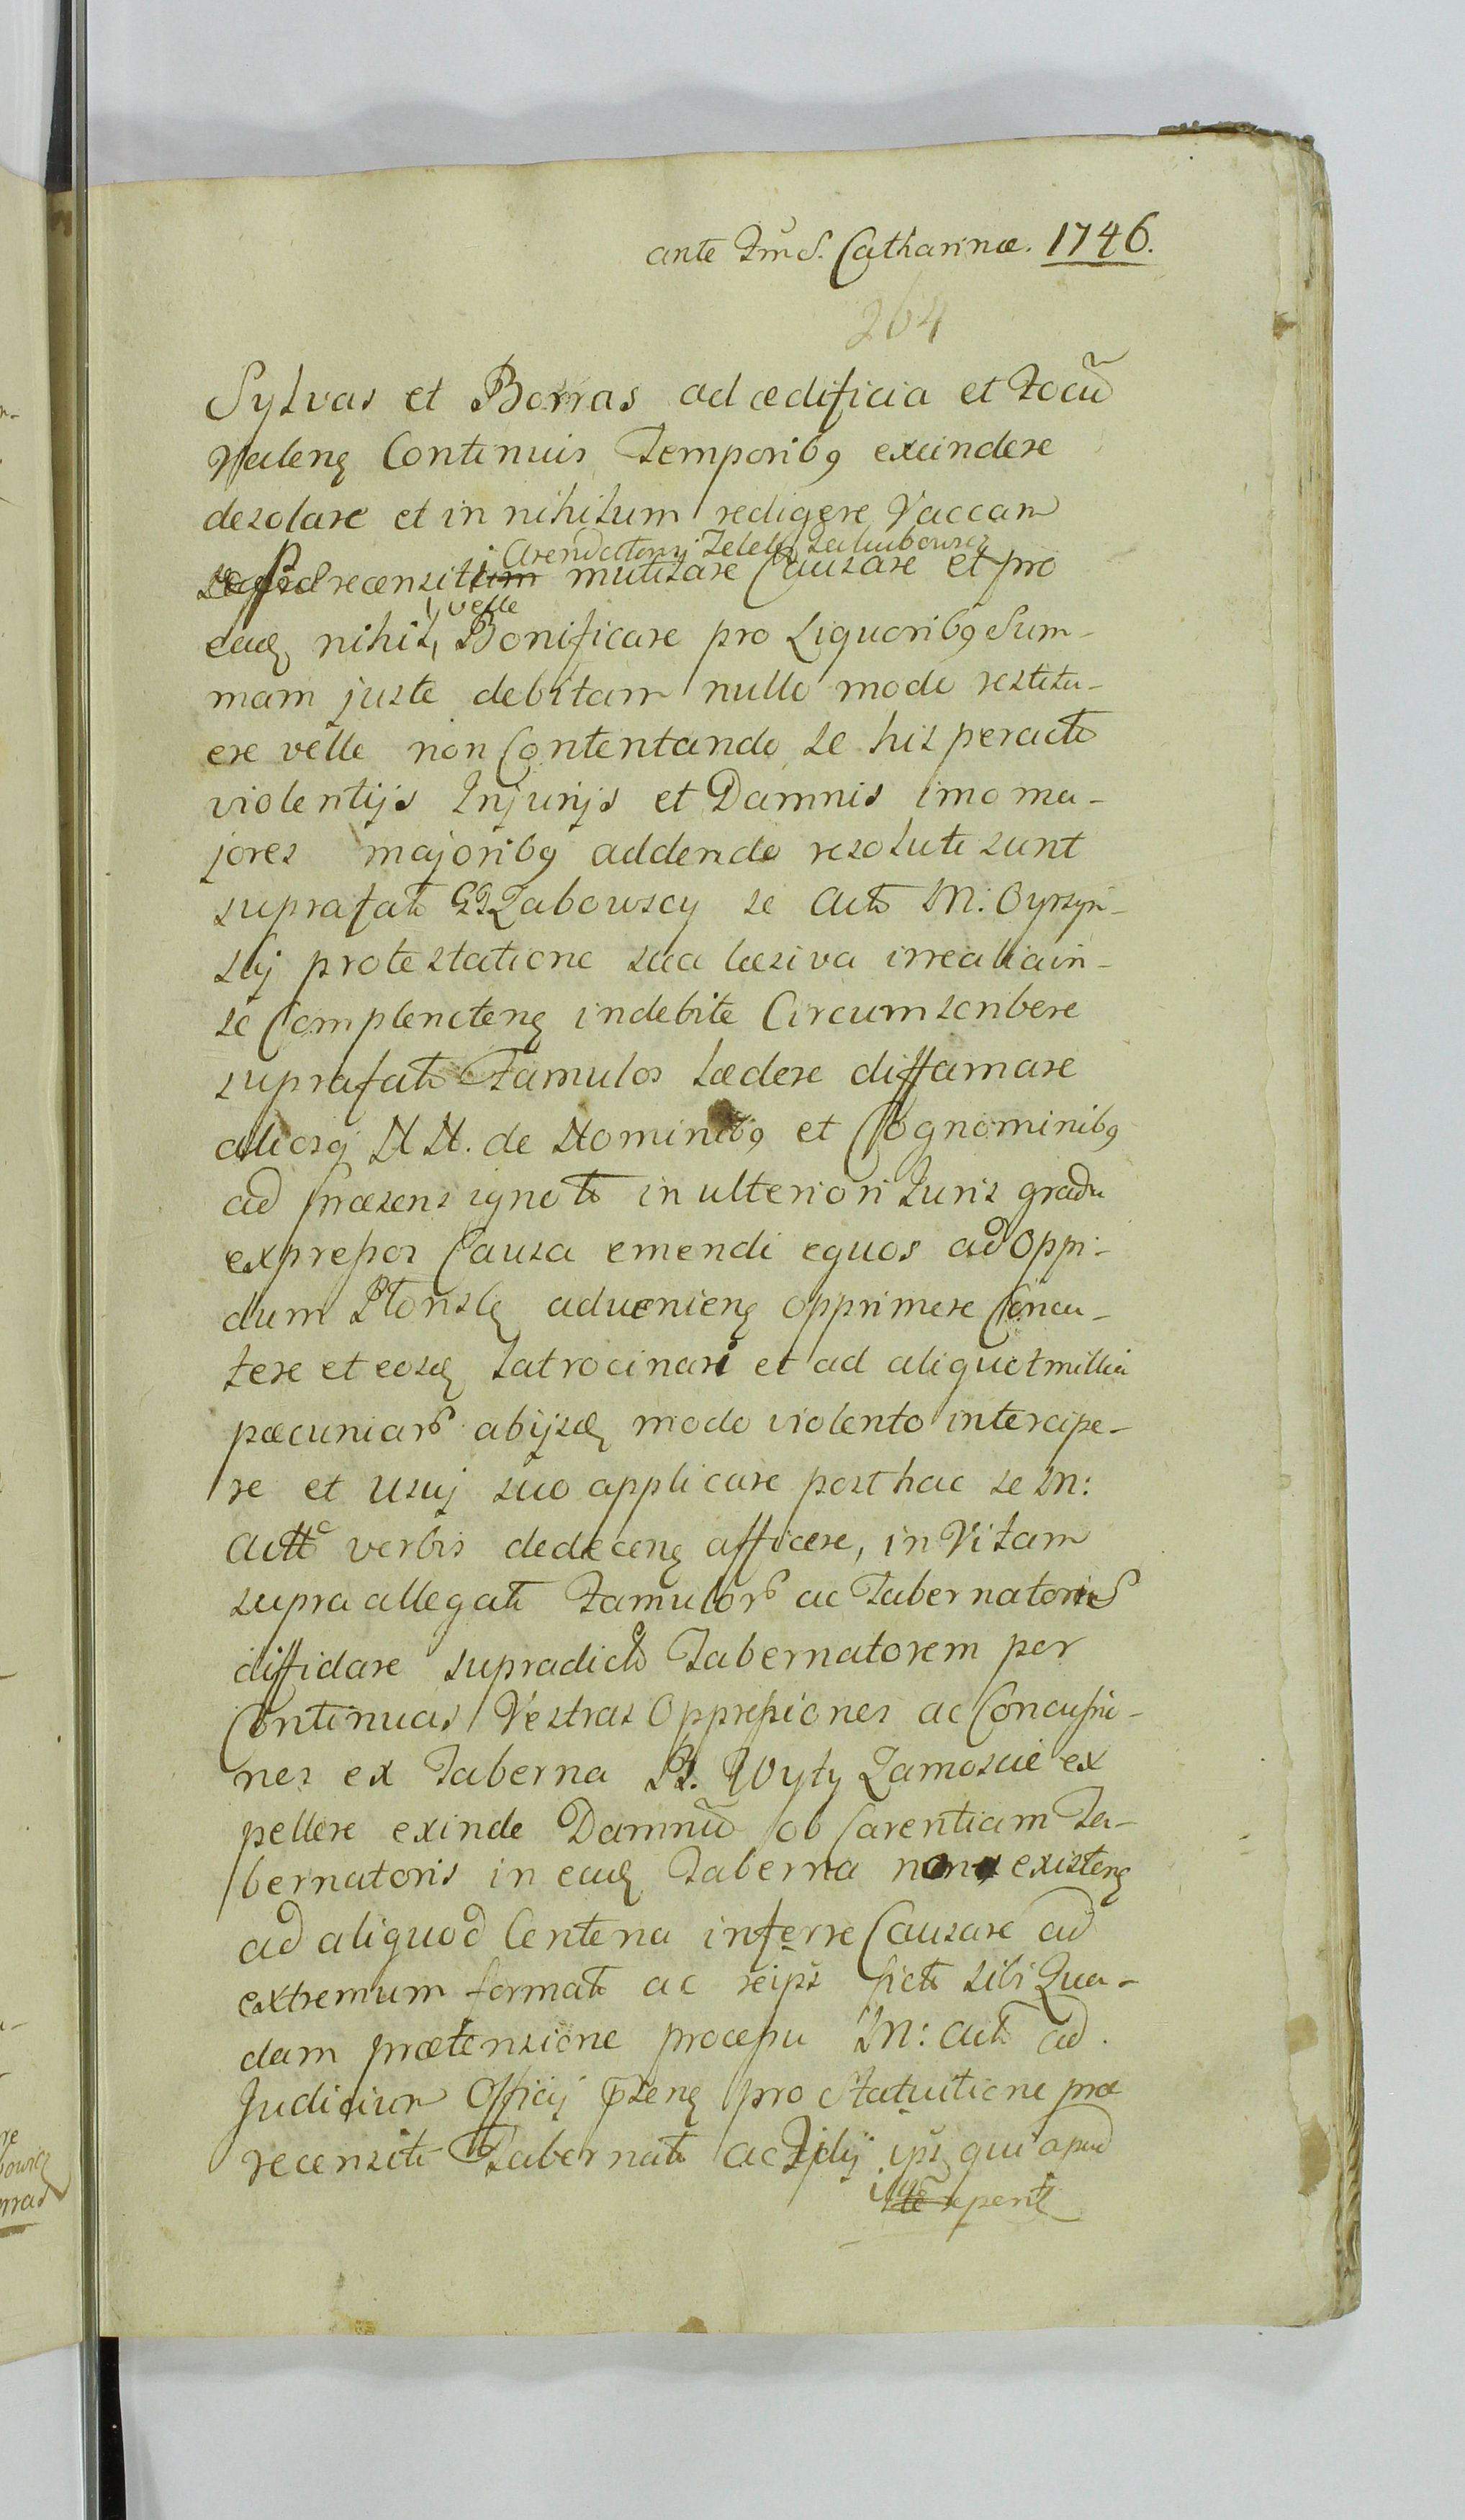 ante Fm S. Catharinæ. 1746.
264
Sylvas et Borras ad ædificia et focũ
Valenꝫ Continuis Temporibꝰ excindere
desolare et in nihilum redigere Vaccam
Arendatorij
recensiti mutilare Causare et pro
velle
eadꝫ nihil, Bonificare pro Liquoribꝰ Sum-
mam juste debitam nullo modo restitu-
ere velle non Contentando se his peracto
violentijs Injurijs et Damnis imo ma-
jores majoribꝰ addendo resoluti sunt
suprafato GG Zabowscy se Acto M: Oyrzyn-
skij protestatione sua læsiva irrealia in-
se Complenctenꝫ indebite Circumscribere
suprafato Famulos lædere diffamare
aliosqꝫ N N. de Nominibꝰ et Cognominibꝰ
ad præsens ignoto in ulteriori Juris gradu
expressos Causa emendi equos ad Oppi-
dum Płonskꝫ advenienꝫ opprimere Concu-
tere et eosdꝫ latrocinari et ad aliquot millia
pæcuniarũ ab ijsdꝫ modo violento intercipe-
re et usuj suo applicare post hac se M:
Acttẽ verbis dedecenꝫ afficere, in Vitam
supra allegato Famulorũ ac Tabernatoris
diffidare supradicto Tabernatorem per
Continuas Vestras Oppressiones ac Concussio-
nes ex Taberna Wyty Zamoscie ex
pellere exinde Damnũ ob Carentiam Ta-
bernatoris in eadꝫ Taberna non existenꝫ
ad aliquod Centena inferre Causare ad
extremum formato ac reips ficto sibi Qua-
dam prætensione processu M: Acto ad
Judicium Officij p̃senꝫ pro Statuitione præ
recensiti Tabernato ac ips qui apud
illũ reperit